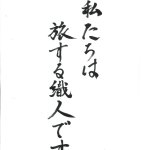 私たちは
旅する織人です